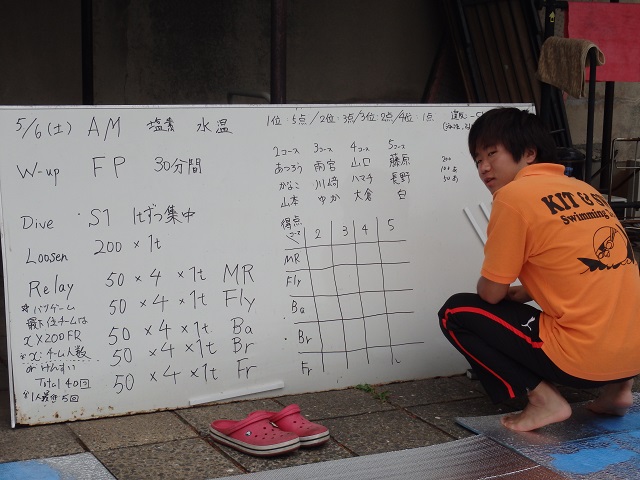 5/6(土) AM 塩素 水温
W-up FP 30分間
Dive ・S1 1tずつ集中
Loosen 200 × 1t
Relay 50 × 4 × 1t MR
50 × 4 × 1t Fly
50 × 4 × 1t Ba
50 × 4 × 1t Br
50 × 4 × 1t Fr
※バツゲーム
最下位チームは
x×200FR
※x:チーム人数
Total 40回
※1人最低5回
1位:5点/2位:3点/3位:2点/4位:1点
2コース 3コース 4コース 5コース
あつろう 南宮 山口 藤原
かなこ 川崎 ハマチ 長野
山本 ゆか 大倉 白
200
100
50
得点
コース 2 3 4 5
MR
Fly
Ba
Br
Fr
KIT &
Swimming